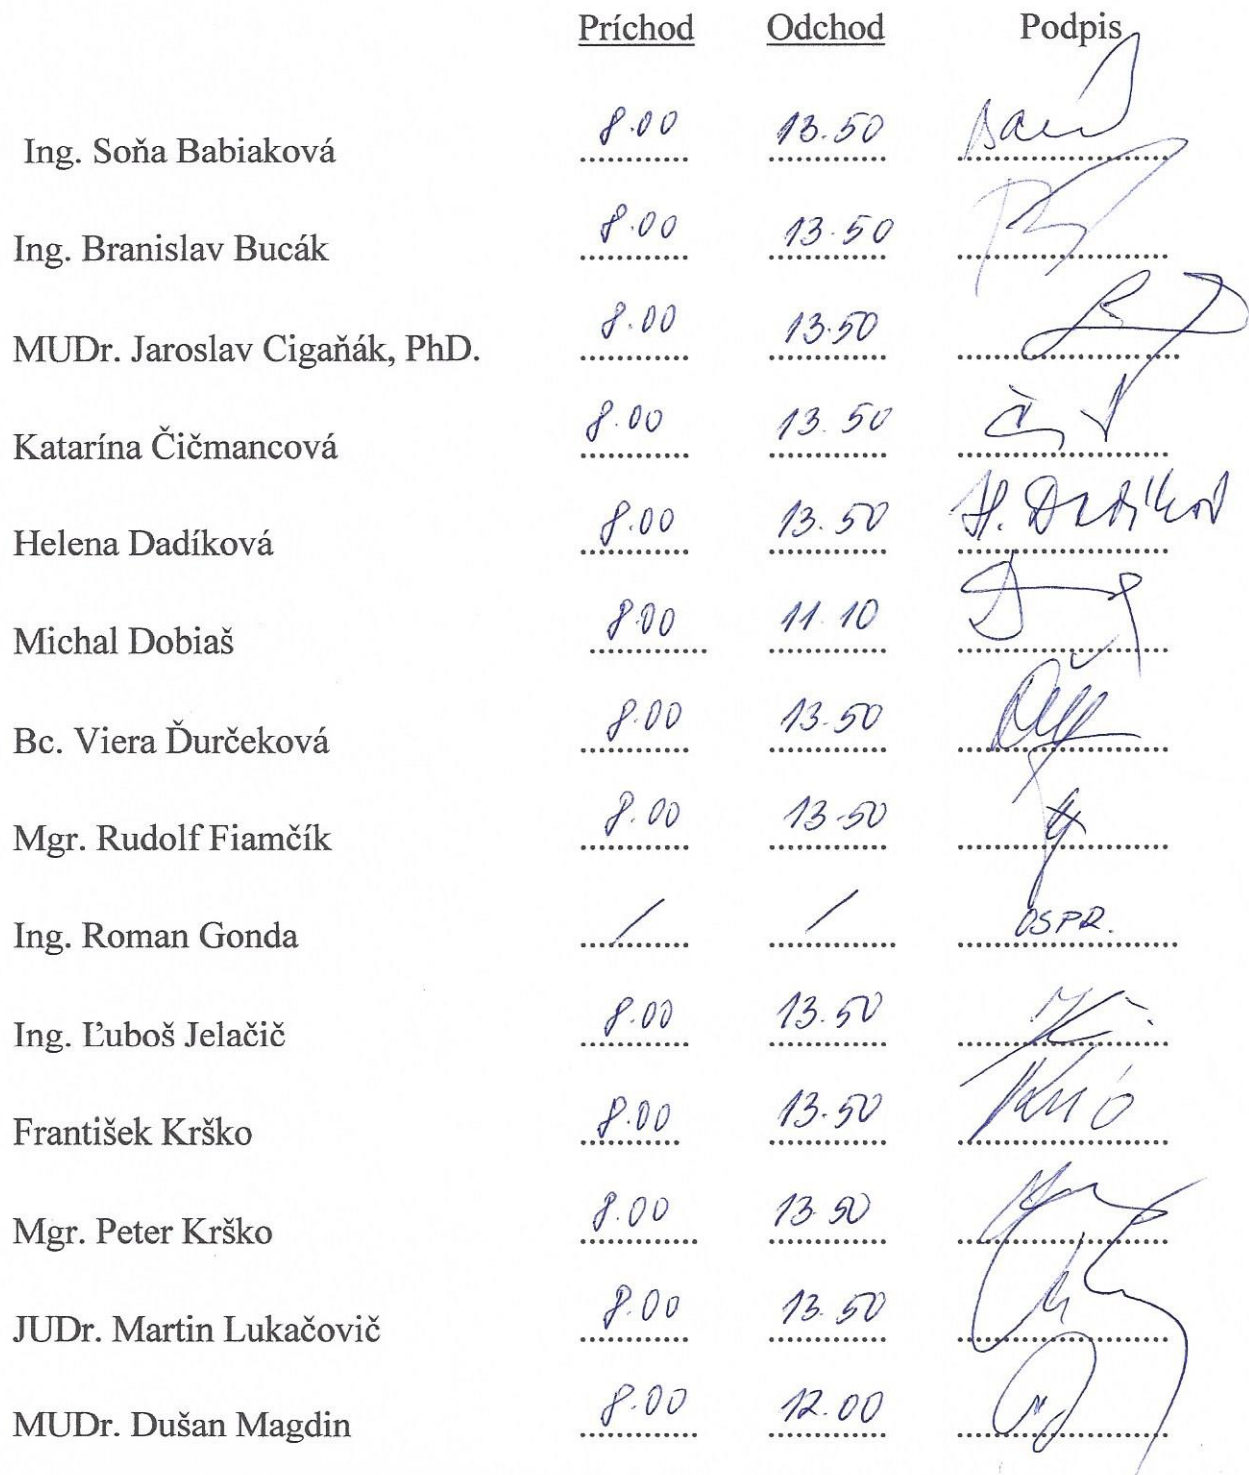 Príchod Odchod Podpis
Ing. Soňa Babiaková 8.00 13.50
Ing. Branislav Bucák 8.00 13.50
MUDr. Jaroslav Cigaňák, PhD. 8.00 13.50
Katarína Čičmancová 8.00 13.50
Helena Dadíková 8.00 13.50 H. Dadíková
Michal Dobiaš 8.00 11.10
Bc. Viera Ďurčeková 8.00 13.50
Mgr. Rudolf Fiamčík 8.00 13.50
Ing. Roman Gonda / / OSPR.
Ing. Ľuboš Jelačič 8.00 13.50
František Krško 8.00 13.50
Mgr. Peter Krško 8.00 13.50
JUDr. Martin Lukačovič 8.00 13.50
MUDr. Dušan Magdin 8.00 12.00